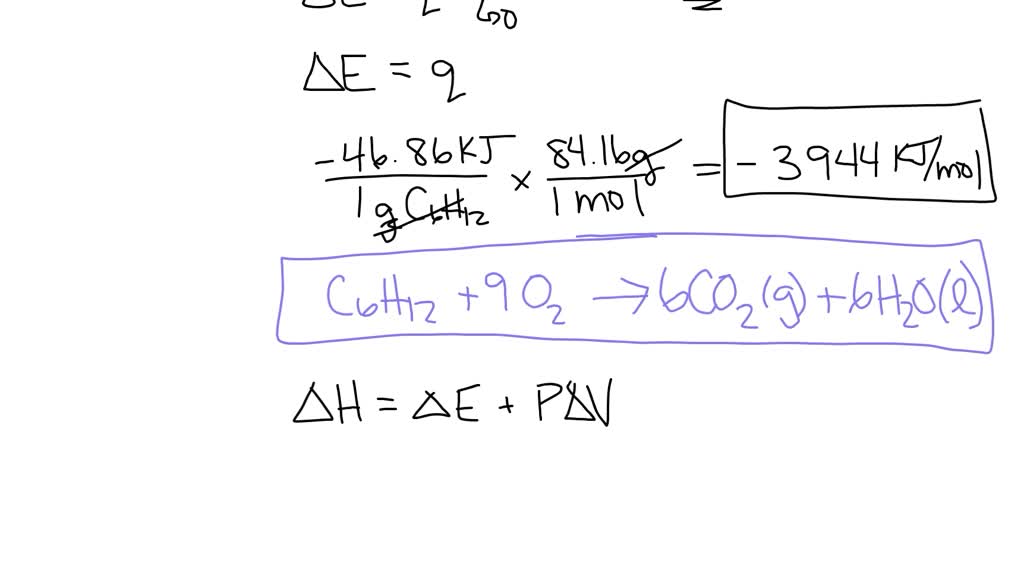 ΔE = q
-46.86 KJ / 1 g C6H12 × 84.16g / 1 mol = -3944 KJ/mol
C6H12 + 9O2 → 6CO2(g) + 6H2O(l)
ΔH = ΔE + PΔV